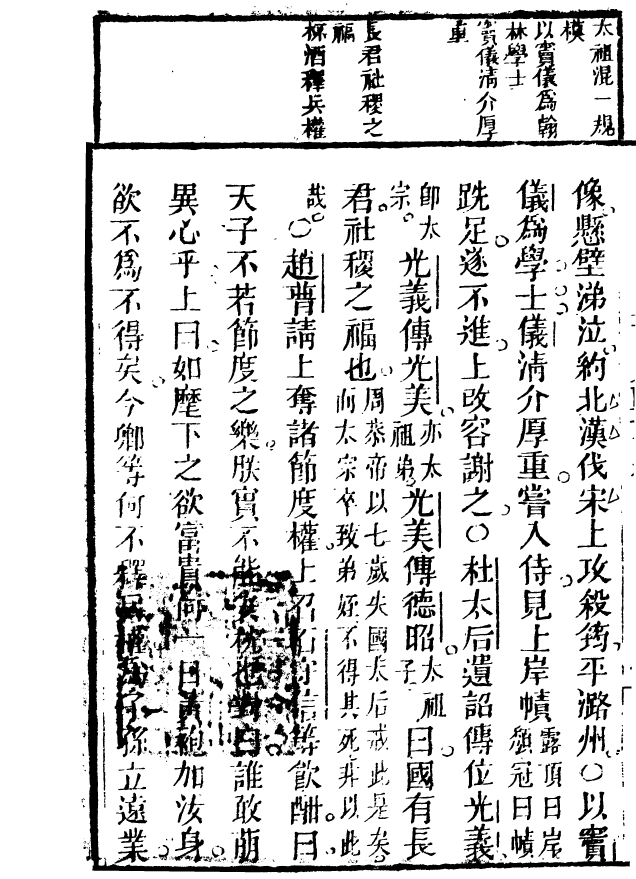 太祖混一規
模
以竇儀爲翰
林學士
竇儀淸介厚
重
長君社稷之
福
杯酒釋兵權
像懸壁涕泣約北漢伐宋上攻殺筠平潞州〇以竇
儀爲學士儀淸介厚重嘗入侍見上岸幘露頂日岸額冠日幘
跣足遂不進上改容謝之〇杜太后遺詔傳位光義
卽太宗光義傳光美亦太祖弟光美傳德昭太祖子曰國有長
君社稷之福也周恭帝以七歲失國太后戒此是矣而太宗卒致弟姪不得其死非以此
哉〇趙普請上奪諸節度權上召石守信等飮酣曰
天子不若節度之樂朕實不能安枕也對曰誰敢萌
異心乎上曰如麾下之欲富貴何一日黃袍加汝身
欲不爲不得矣今卿等何不釋兵權爲子孫立遠業